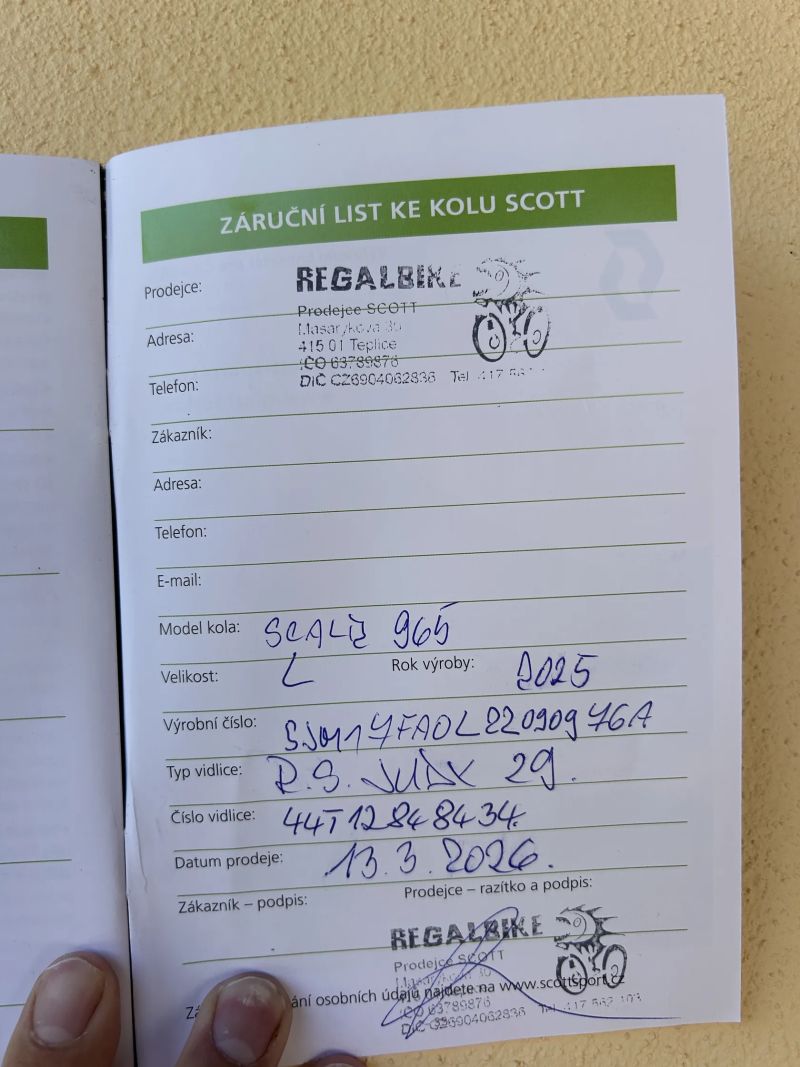 ZÁRUČNÍ LIST KE KOLU SCOTT
Prodejce:
REGALBIKE
Prodejce SCOTT
Adresa:
Masarykova 30
415 01 Teplice
IČO 63789876
Telefon:
DIČ CZ6904062836 Tel
Zákazník:
Adresa:
Telefon:
E-mail:
Model kola: SCALE 965
Velikost: L Rok výroby: 2025
Výrobní číslo:
Typ vidlice: R.S. JUDY 29.
Číslo vidlice: 44T12848434
Datum prodeje: 13.3.2026.
Zákazník – podpis: Prodejce – razítko a podpis:
REGALBIKE
Prodejce SCOTT
Masarykova 30
ání osobních údajů najdete na www.scottsport.cz
IČO 63789876
DIČ CZ6904062836 Tel